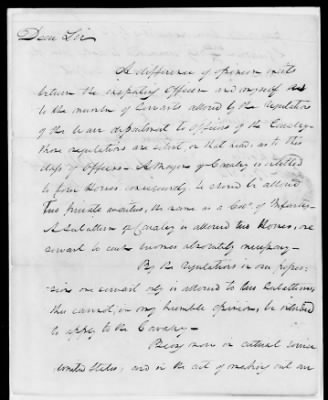 Dear Sir
A difference of opinion exists
between the inspecting Officer and myself as
to the number of Servants allowed by the regulations
of the War department to officers of the Cavalry—
those regulations are silent, on that head, as to this
class of Officers— A Major of Cavalry is entitled
to four Horses consequently, he should be allowed
two private servants, the same as a Col. of Infantry—
A Subaltern of Cavalry is allowed two Horses, one
servant to each becomes absolutely necessary—
By the regulations in our posses-
sion one servant only is allowed to two Subalterns,
this cannot, in my humble opinion, be intended
to apply to the Cavalry—
Being now on actual service
United States, and in the act of making out our